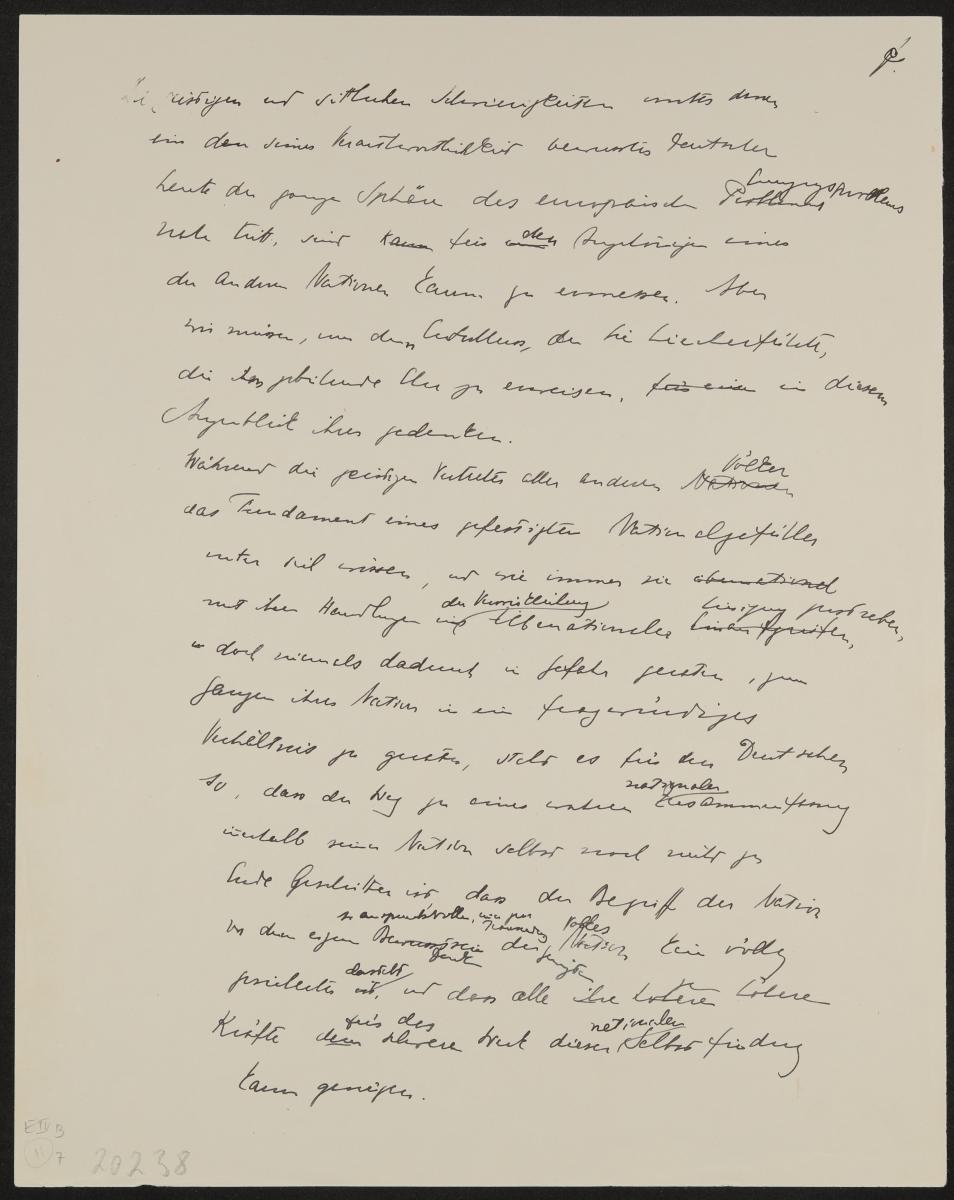 Die geistigen und sittlichen Schwierigkeiten unter denen
ein dem seiner Verantwortlichkeit bewusster Deutscher
heute der ganzen Sphäre des europäischen Problems Einigungsproblems
nahe tritt, sind kaum für einen den Angehörigen eines
der anderen Nationen kaum zu ermessen. Aber
wir müssen, um dem, der Sie hierherführte,
die gebührende Ehre zu erweisen, für einen in diesem
Augenblick ihrer gedenken.
Während die geistigen Vertreter aller anderen Nationen Völker
das Fundament eines gefestigten Nationalgefühles
unter sich wissen, und wie immer sie übernational
mit ihren Handlungen der übernationaler Einigung zustreben,
doch niemals dadurch in Gefahr geraten, zum
Ganzen ihrer Nation in ein fragwürdiges
Verhältnis zu geraten, steht es für den Deutschen
so, dass der Weg zu einer wahren nationalen Zusammenfassung
innerhalb seiner Nation selbst noch nicht zu
Ende geschritten ist, dass der Begriff der Nation
vor dem eigenen Bewusstsein der Nation Volkes kein völlig
gesicherter ist, und dass alle ihre höheren höheren
Kräfte dem für das schwere Werk dieser nationalen Selbstfindung
kaum genügen.
E IV B
11
7
20238